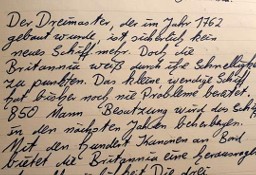 Der Dreimaster, der im Jahr 1762
gebaut wurde, ist sicherlich kein
neues Schiff mehr. Doch die
Britannia weiß durch ihre Schnelligkeit
zu punkten. Das kleine wendige Schiff
hat bisher noch nie Probleme bereitet.
850 Mann Besatzung wird das Schiff
in den nächsten Jahren beherbergen.
Mit den hundert Kanonen an Bord
bietet die Britannia eine
Die drei